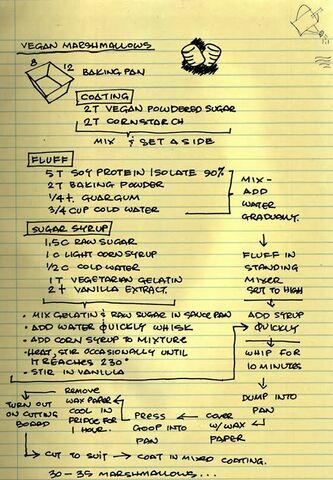 VEGAN MARSHMALLOWS
8
12
BAKING PAN
COATING
2T VEGAN POWDERED SUGAR
2T CORNSTARCH
MIX & SET ASIDE
FLUFF
5T SOY PROTEIN ISOLATE 90%
2T BAKING POWDER
1/4t. GUARGUM
3/4 CUP COLD WATER
MIX-
ADD
WATER
GRADUALLY.
SUGAR SYRUP
1,5C RAW SUGAR
1C LIGHT CORN SYRUP
1/2C COLD WATER
1T VEGETARIAN GELATIN
2t VANILLA EXTRACT.
FLUFF IN
STANDING
MIXER
SET TO HIGH
• MIX GELATIN & RAW SUGAR IN SAUCE PAN
• ADD WATER QUICKLY WHISK
• ADD CORN SYRUP TO MIXTURE
• HEAT, STIR OCCASIONALLY UNTIL
IT REACHES 230°
- STIR IN VANILLA
ADD SYRUP
QUICKLY
WHIP FOR
10 MINUTES
DUMP INTO
PAN
COVER
W/WAX
PAPER
PRESS
GOOP INTO
PAN
REMOVE
WAX PAPER
COOL IN
FRIDGE FOR
1 HOUR.
TURN OUT
ON CUTTING
BOARD
CUT TO SUIT → COAT IN MIXED COATING.
30 - 35 MARSHMALLOWS...